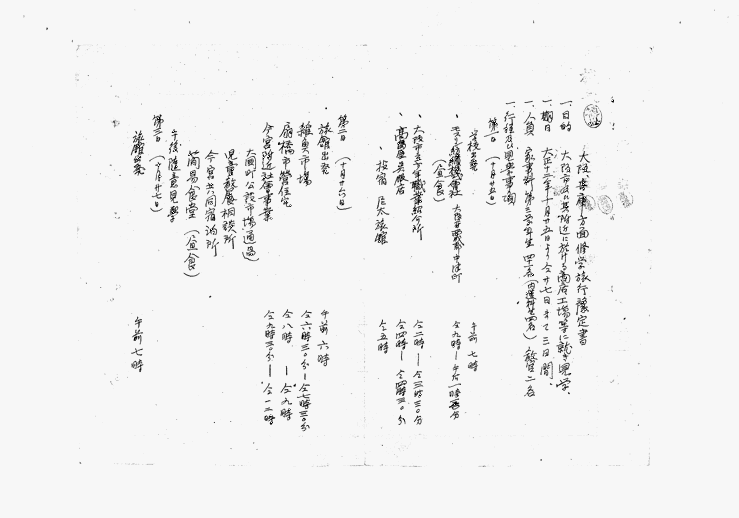 大阪、兵庫方面修学旅行豫定書
一、目的　大阪市及其附近に於ける商店工場等に就き見学
一、期日　大正十二年十月廿五日より仝廿七日まで三日間、
一、人員　家事科第三学年生　四十名　教官二名
一、行程及見学事項
第一日（十月廿五日）
学校出発　午前　七時
大阪　仝九時ー午后一時
（昼食）
、大阪市立　職業紹介所　仝二時ー仝三時三〇分
、髙島屋呉服店　仝四時ー仝四時三〇分
、投宿　旅館　仝五時
第二日（十月廿六日）
旅館出発　午前　六時
雑魚市場　仝六時三〇分ー仝七時三〇分
市営住宅　仝八時ー仝九時
今宮附近社會事業　仝九時三〇分ー仝一二時
大国町公設市場通過）
児童教養相談所
今宮共同宿泊所
簡易食堂（昼食）
午後随意見學
第三日（十月廿七日）
旅館出発　午前　七時